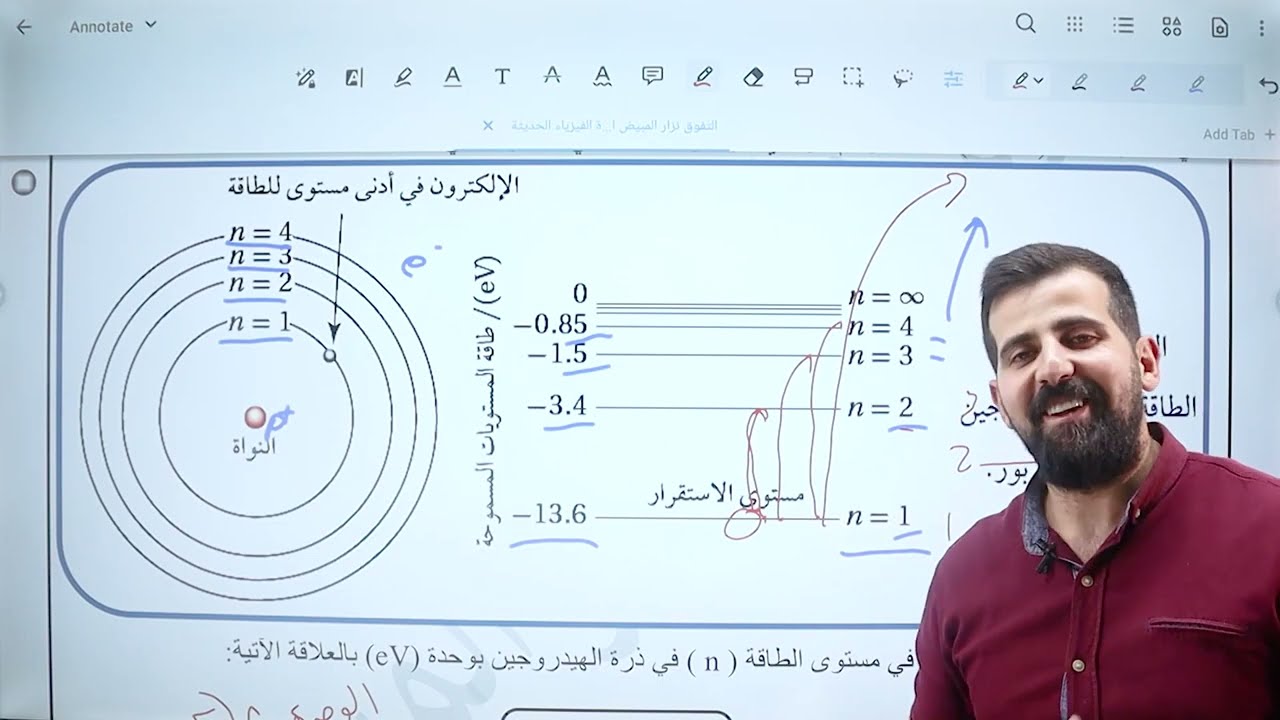 Annotate
التفوق نزار المبيض ا...ة الفيزياء الحديثة
Add Tab
الإلكترون في أدنى مستوى للطاقة
n = 4
n = 3
n = 2
n = 1
e-
p+
النواة
طاقة المستويات المسموحة / (eV)
0 n = ∞
−0.85 n = 4
−1.5 n = 3
−3.4 n = 2
مستوى الاستقرار
−13.6 n = 1
الطاقة
بور.
في مستوى الطاقة ( n ) في ذرة الهيدروجين بوحدة (eV) بالعلاقة الآتية: